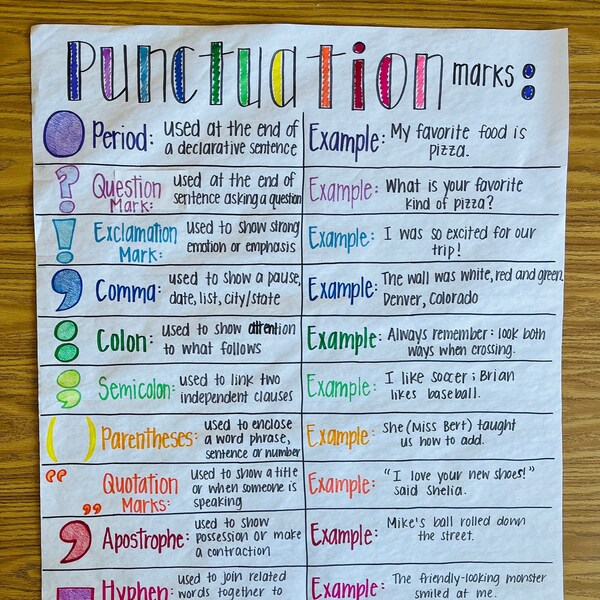 Punctuation marks:
Period: used at the end of
a declarative sentence
Example: My favorite food is
pizza.
Question
Mark:
used at the end of
sentence asking a question
Example: What is your favorite
kind of pizza?
Exclamation
Mark:
used to show strong
emotion or emphasis
Example: I was so excited for our
trip!
Comma: used to show a pause,
date, list, city/state
Example: The wall was white, red and green.
Denver, Colorado
Colon: used to show attention
to what follows
Example: Always remember: look both
ways when crossing.
Semicolon: used to link two
independent clauses
Example: I like soccer; Brian
likes baseball.
Parentheses: used to enclose
a word phrase,
sentence or number
Example: She (Miss Bert) taught
us how to add.
Quotation
Marks:
used to show a title
or when someone is
speaking
Example: "I love your new shoes!"
said Shelia.
Apostrophe: used to show
possession or make
a contraction
Example: Mike's ball rolled down
the street.
Hyphen: used to join related
words together to
Example: The friendly-looking monster
smiled at me.